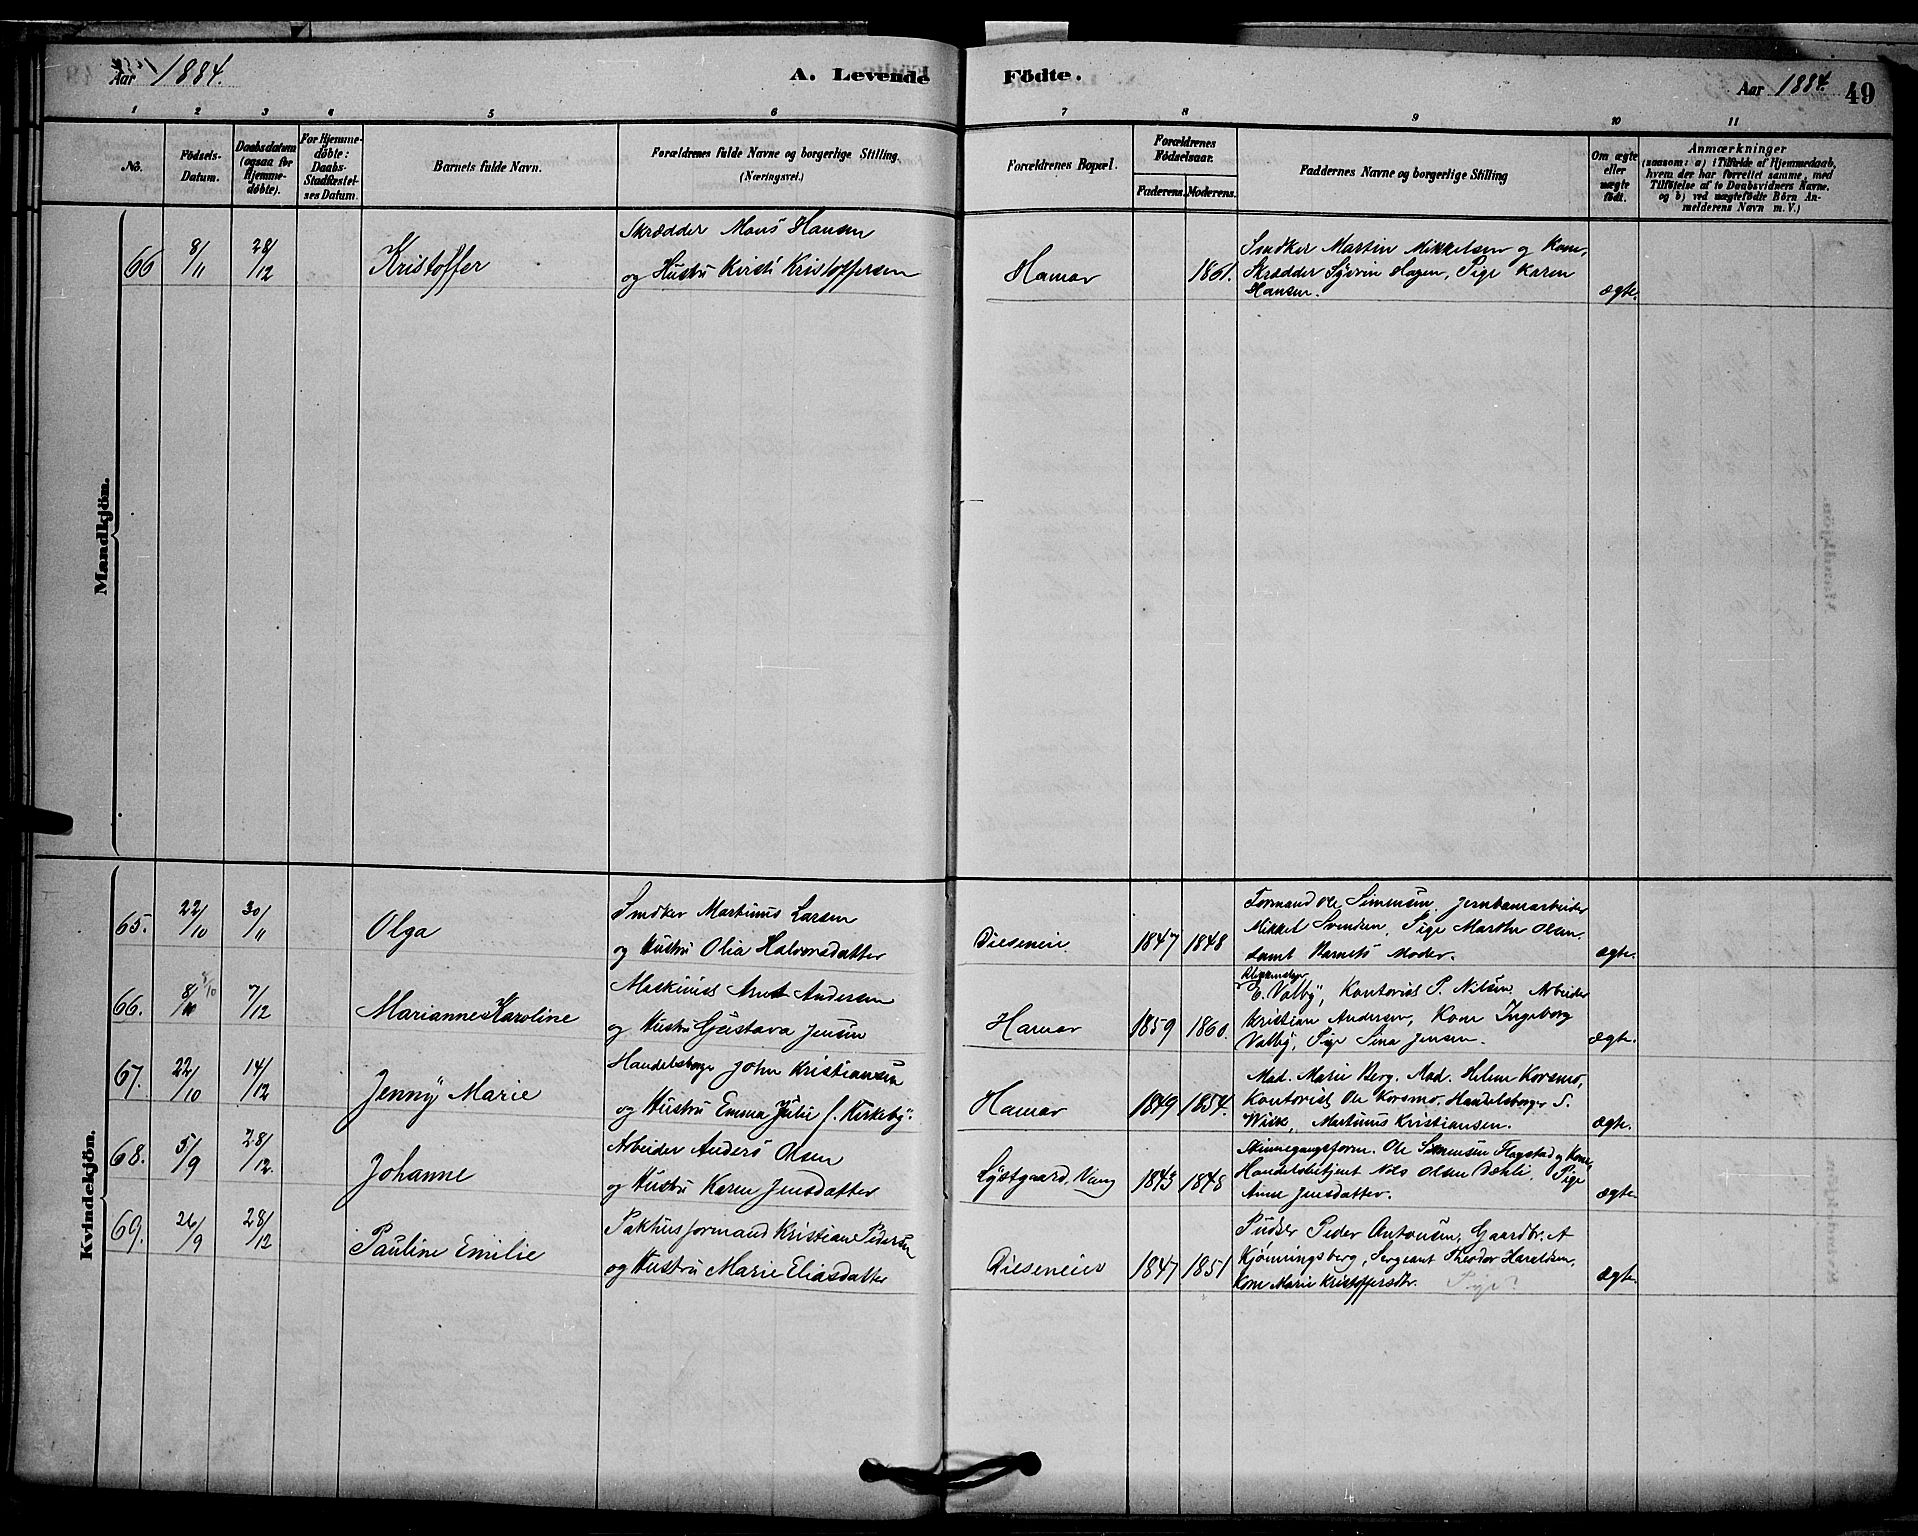 Aar 1884. A. Levende Födte. Aar 1884. 49
1 2 3 4 5 6 7 8 9 10 11
No.
Födsels-Datum.
Daabsdatum (ogsaa for Hjemme-döbte).
For Hjemme-döbte: Daabs-Stadfæstel-ses Datum.
Barnets fulde Navn.
Forældrenes fulde Navne og borgerlige Stilling.
(Næringsvei.)
Forældrenes Bopæl.
Forældrenes Födselsaar.
Faderens. Moderens.
Faddernes Navne og borgerlige Stilling
Om ægte eller uægte födt.
Anmærkninger
(saasom: a) i Tilfælde af Hjemmedaab, hvem der har forrettet samme, med Tilföielse af to Daabsvidners Navne. og b) ved uægtefödte Börn An-melderens Navn m.V.)
Mandkjön.
66 8/11 28/12 Kristoffer
Skrædder Mons Hansen
og Hustru Kirsti Kristoffersen
Hamar 1861.
Snedker Martin Mikkelsen og Kone,
Skrædder Syver Hagen, Pige Karen
Hansen. ægte.
Kvindekjön.
65. 22/10 30/11 Olga
Snedker Martinus Larsen
og Hustru Olia Halvorsdatter
Dieseneie 1847 1848
Formand Ole Simensen, Jernbanearbeider
Mikkel Svendsen, Pige Marthe Olsen,
samt Barnets Moder. ægte.
66. 8/10 8/10 7/12 Marianne Karoline
Maskinist Andersen
og Hustru Gustava Jensen
Hamar 1859 1860.
E. Valby, Kontorist P. Nilsen, Arbeider
Kristian Andersen, Kone Ingeborg
Valby, Pige Sina Jensen. ægte.
67. 22/10 14/12 Jenny Marie
Handelsborger John Kristiansen
og Hustru Emma Julie f. Kirkeby.
Hamar 1849 1854.
Mad. Marie Berg, Mad. Helene Korsmo,
Kontorist Ole Korsmo, Handelsborger S.
Wiik, Martinus Kristiansen. ægte.
68. 5/9 28/12. Johanne
Arbeider Anders Olsen
og Hustru Karen Jensdatter
Lystgaard, Vang 1843 1848
Skinnegangsform. Ole Simensen Flagstad og Kone,
Handelsbetjent Nils Olsen Dæhli, Pige
Anne Jensdatter. ægte
69. 26/9 28/12 Pauline Emilie
Pakhusformand Kristian Pedersen
og Hustru Marie Eliasdatter
Dieseneier 1847 1851
Pudser Peder Antonsen, Gaardbr. A
Kjönningsberg, Sergeant Theodor Haraldsen,
Kone Marie Kristoffersdtr. Pige? ægte.